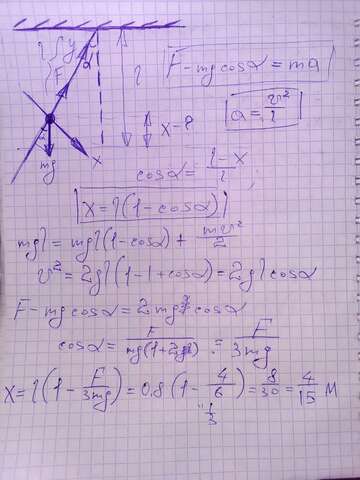 l { y
F α
l
x - ?
α
mg x
F - mg cosα = ma
a = v²/l
cosα = (l - x)/l ;
x = l(1 - cosα)
mgl = mgl(1 - cosα) + mv²/2
v² = 2gl(1 - 1 + cosα) = 2gl cosα
F - mg cosα = 2mg cosα
cosα = F/(mg(1+2)) = F/3mg
x = l(1 - F/3mg) = 0.8(1 - 4/6) = 8/30 = 4/15 м
1/3